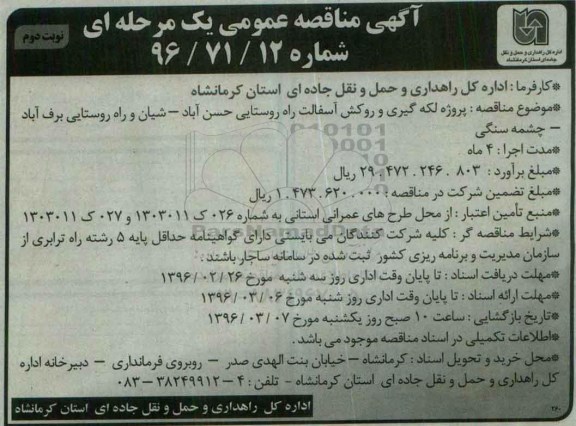 آگهی مناقصه عمومی یک مرحله ای
شماره ۱۲ / ۷۱ / ۹۶
نوبت دوم
اداره کل راهداری و حمل و نقل
جاده ای استان کرمانشاه
*کارفرما : اداره کل راهداری و حمل و نقل جاده ای استان کرمانشاه
*موضوع مناقصه : پروژه لکه گیری و روکش آسفالت راه روستایی حسن آباد – شیان و راه روستایی برف آباد
– چشمه سنگی
*مدت اجرا : ۴ ماه
*مبلغ برآورد : ۲۹.۴۷۲.۲۴۶.۸۰۳ ریال
*مبلغ تضمین شرکت در مناقصه : ۱.۴۷۳.۶۲۰.۰۰۰ ریال
*منبع تأمین اعتبار : از محل طرح های عمرانی استانی به شماره ۰۲۶ ک ۱۳۰۳۰۱۱ و ۰۲۷ ک ۱۳۰۳۰۱۱
*شرایط مناقصه گر : کلیه شرکت کنندگان می بایستی دارای گواهینامه حداقل پایه ۵ رشته راه ترابری از
سازمان مدیریت و برنامه ریزی کشور ثبت شده در سامانه ساجار باشند .
*مهلت دریافت اسناد : تا پایان وقت اداری روز سه شنبه مورخ ۱۳۹۶/۰۲/۲۶
*مهلت ارائه اسناد : تا پایان وقت اداری روز شنبه مورخ ۱۳۹۶/۰۳/۰۶
*تاریخ بازگشایی : ساعت ۱۰ صبح روز یکشنبه مورخ ۱۳۹۶/۰۳/۰۷
*اطلاعات تکمیلی در اسناد مناقصه موجود می باشد .
*محل خرید و تحویل اسناد : کرمانشاه – خیابان بنت الهدی صدر – روبروی فرمانداری – دبیرخانه اداره
کل راهداری و حمل و نقل جاده ای استان کرمانشاه – تلفن : ۴ – ۳۸۲۴۹۹۱۲ – ۰۸۳
اداره کل راهداری و حمل و نقل جاده ای استان کرمانشاه
۲۶۰